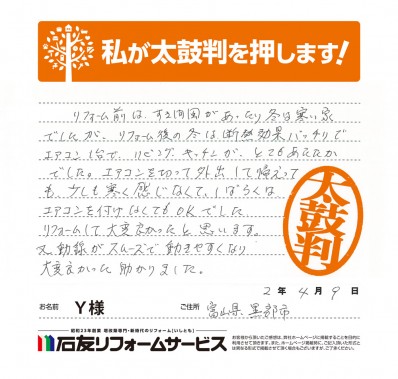 私が太鼓判を押します!
リフォーム前は、すき間風があったり冬は寒い家
でしたが、リフォーム後の冬は断然効果バッチリで
エアコン1台で、リビング、キッチンが、とてもあたたか
でした。エアコンを切って外出して帰えって
も、少しも寒く感じなくて、しばらくは
エアコンを付けなくてもOKでした
リフォームして大変良かったと思います。
又、動線がスムーズで動きやすくなり
大変良かった 助かりました。
太鼓判
2年4月9日
お名前 Y様 ご住所 富山県 黒部市
昭和23年創業 増改築専門・新時代のリフォーム(いしとも)
石友リフォームサービス